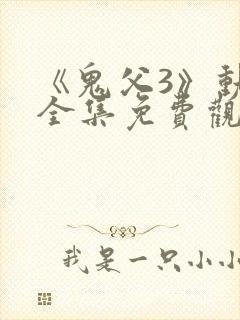 《鬼父3》
全集免費觀
我是一只小小